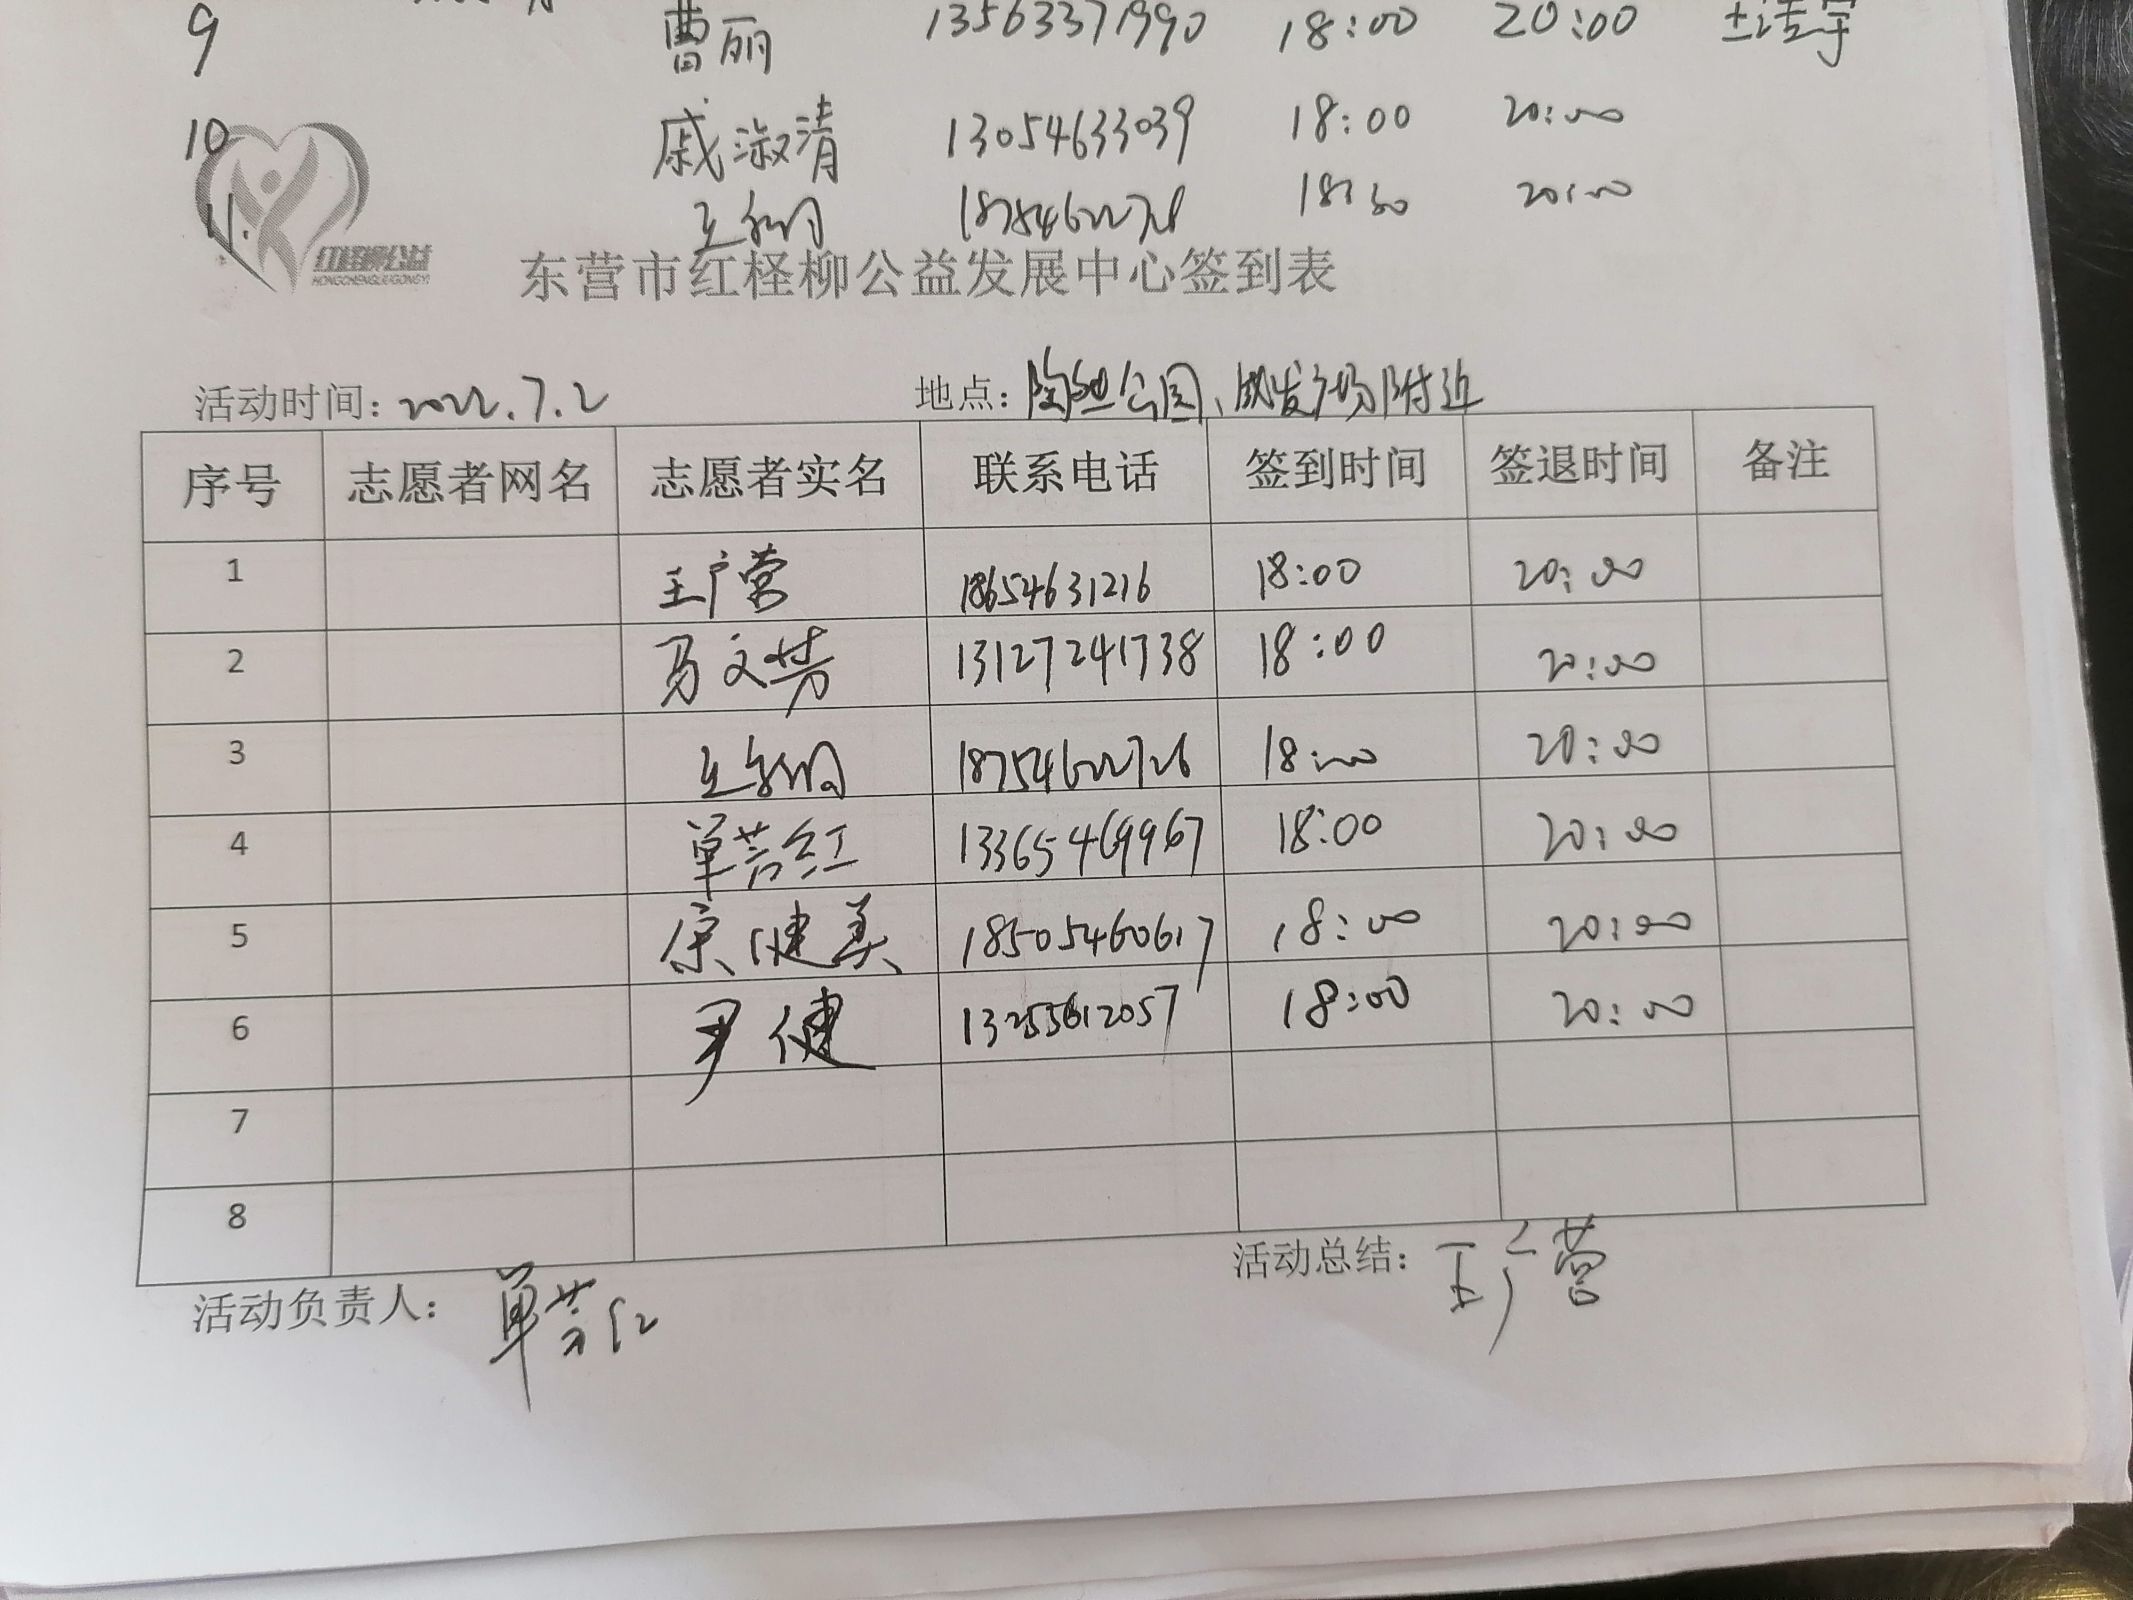 9 曹丽 13563371990 18:00 20:00
10 戚淑清 13054633039 18:00 20:00
11. 18754622728 18:30 20:00
红柽柳公益
HONGCHENGLIUGONGYI
东营市红柽柳公益发展中心签到表
活动时间:2022.7.2 地点: 公园、 广场附近
序号 志愿者网名 志愿者实名 联系电话 签到时间 签退时间 备注
1 王广营 18654631216 18:00 20:00
2 马文芳 13127241738 18:00 20:00
3 18754622728 18:00 20:00
4 单芸红 13365469967 18:00 20:00
5 健美 18505460617 18:00 20:00
6 尹健 13255612057 18:00 20:00
7
8
活动负责人: 单芸红 活动总结: 王广营